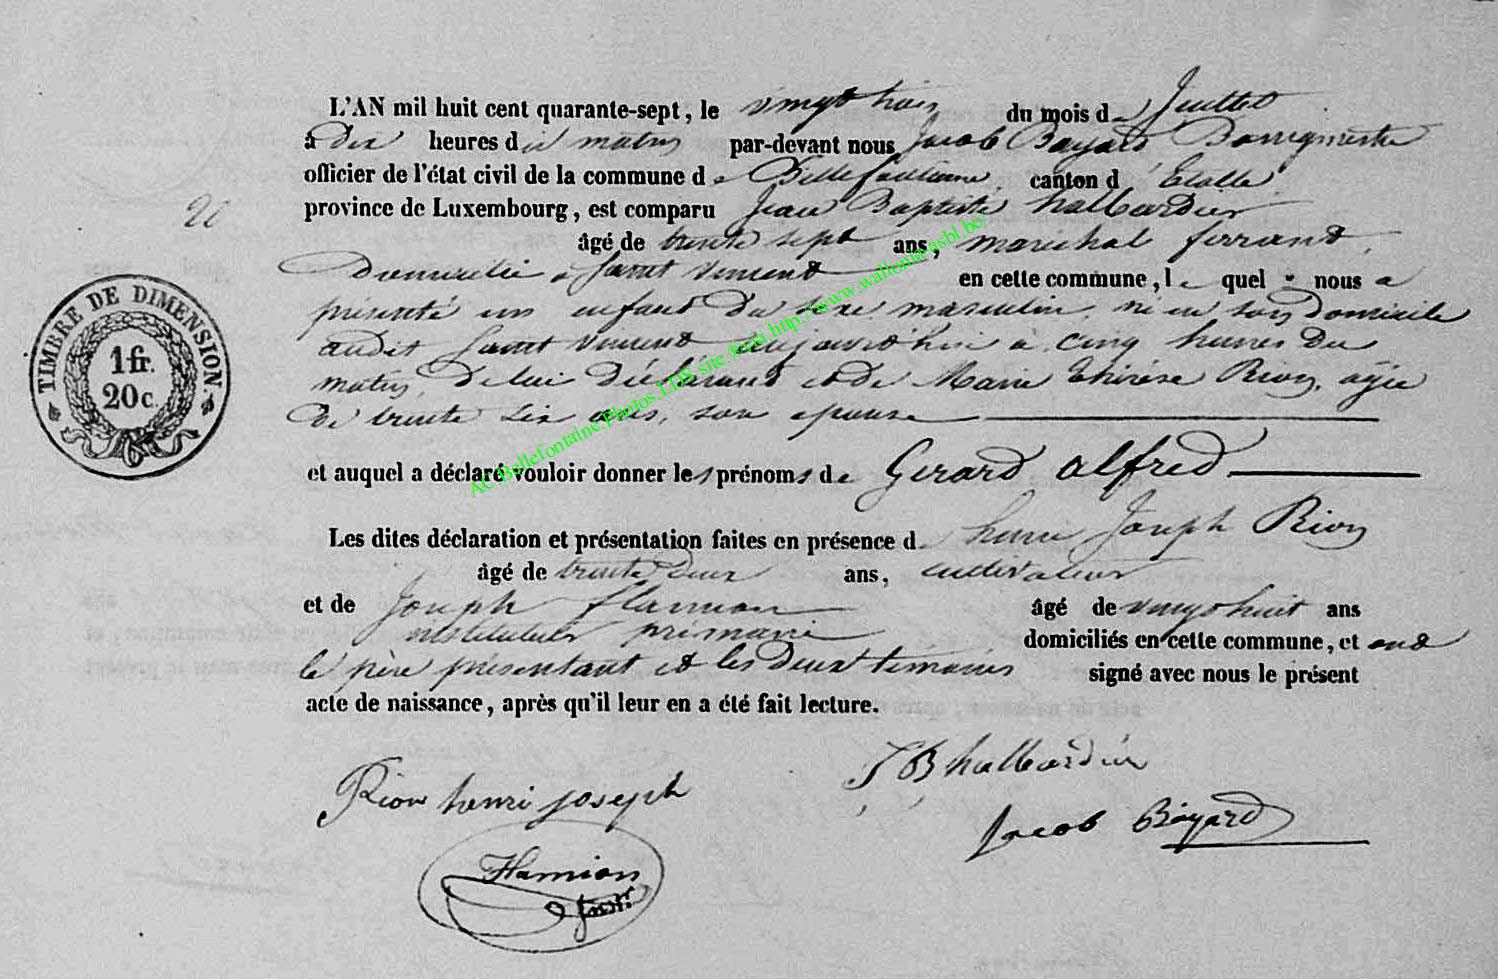 L'AN mil huit cent quarante-sept, le vingt trois du mois de Juillet
à dix heures du matin par-devant nous Jacob Bayard Bourgmestre
officier de l'état civil de la commune de Bellefontaine canton d'Etalle
province de Luxembourg, est comparu Jean Baptiste halbardier
20
âgé de trente sept ans, maréchal ferrant
domicilié à Saint Vincent en cette commune, le quel nous a
présenté un enfant du sexe masculin, né en son domicile
audit Saint Vincent aujourd'hui à cinq heures du
matin, de lui déclarant et de Marie Thérèse Rion, agée
de trente six ans, son epouse
et auquel a déclaré vouloir donner les prénoms de Gérard alfred
Les dites déclaration et présentation faites en présence de henri Joseph Rion
âgé de trente deux ans, cultivateur
et de Joseph flamion âgé de vingt huit ans
instituteur primaire domiciliés en cette commune, et ont
le père présentant et les deux témoins signé avec nous le présent
acte de naissance, après qu'il leur en a été fait lecture.
JB halbardier
Rion henri joseph
Jacob Bayard
Flamion
Instr.
TIMBRE DE DIMENSION
1 fr.
20 c.
AC.Bellefontaine.Photos.LDS site. via http://www.wallonia-asbl.be/